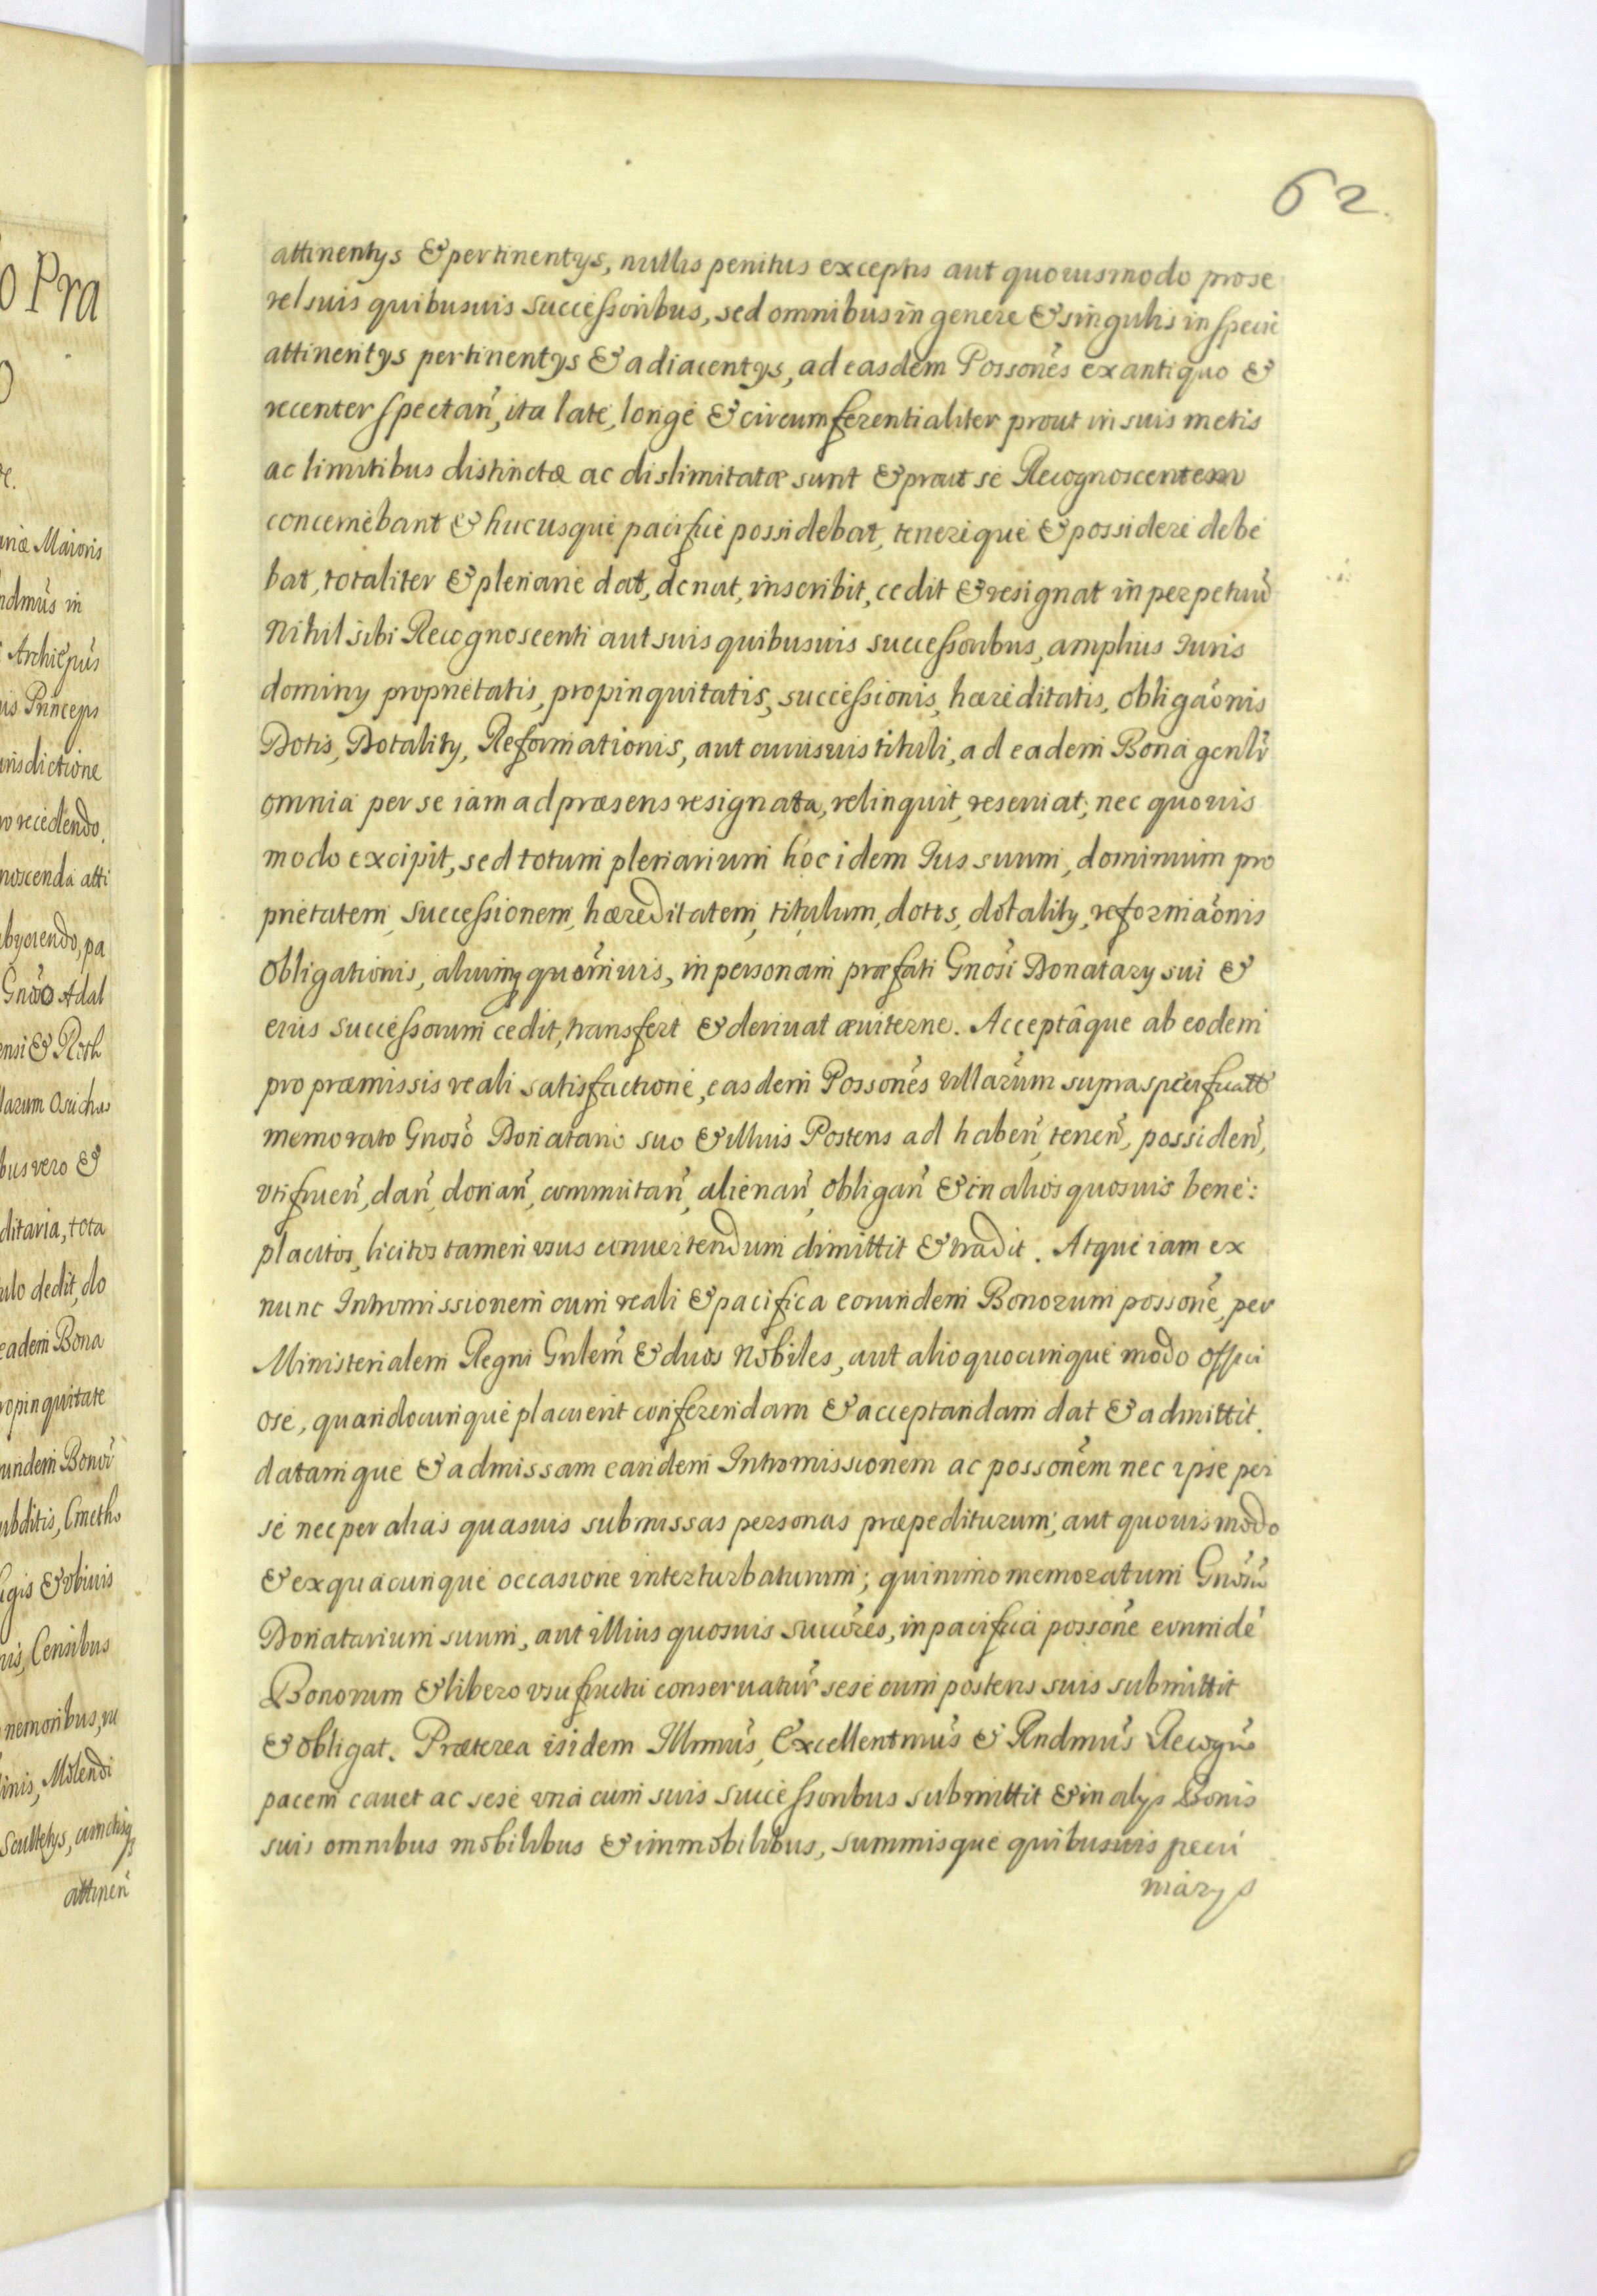 62.
attinentys & pertinentys, nullis penitus exceptis aut quouismodo pro se
vel suis quibusuis successoribus, sed omnibus in genere & singulis in specie
attinentys pertinentys & adiacentys, ad easdem Possoñes ex antiquo &
recenter spectañ, ita late, longe & circumferentialiter prout in suis metis
ac limitibus distinctæ ac dislimitatæ sunt & prout se Recognoscentem
concernebant & hucusque pacifice possidebat, tenerique & possidere debe
bat, totaliter & plenarie dat, donat, inscribit, cedit & resignat in perpetuũ
Nihil sibi Recognoscenti aut suis quibusuis successoribus, amplius Iuris
dominy proprietatis, propinquitatis, successionis, hæreditatis, obligaõnis
Dotis, Dotality, Reformationis, aut cuiusuis tituli, ad eadem Bona genlr̃
omnia per se iam ad præsens resignata, relinquit, reseruat; nec quouis
modo excipit, sed totum plenarium hoc idem Ius suum, dominium pro
prietatem, successionem, hæreditatem, titulum, dotis, dotality, reformaõnis
Obligationis, aliumq quom̃uis, in personam præfati Gnosi Donatary sui &
eius successorum cedit, transfert & deriuat æuiterne. Acceptâque ab eodem
pro præmissis reali satisfactione, easdem Possoñes villarum supraspecificatt
memorato Gnoso Donatario suo & illius Posteris ad habeñ, teneñ, possideñ,
vtifrueñ, dañ, donañ, commutañ, alienañ, obligañ & in alios quosuis bene:
placitos, licitos tamen vsus conuertendum dimittit & tradit. Atque iam ex
nunc Intromissionem cum reali & pacifica eorundem Bonorum possoñe, per
Ministerialem Regni Gnlem̃ & duos Nobiles, aut alio quocunque modo offici
ose, quandocunque placuerit conferendam & acceptandam dat & admittit.
datamque & admissam eandem Intromissionem ac possoñem nec ipse per
se nec per alias quasuis submissas personas præpediturum, aut quouis modo
& ex quacunque occasione interturbaturum; quinimo memoratum Gnosũ
Donatarium suum, aut illius quosuis succ̃res, in pacifica possoñe eorundẽ
Bonorum & libero vsufructu conseruatur̃ sese cum posteris suis submittit
& obligat. Præterea isidem Illmũs, Excellentmũs & Rndmũs Recogñ
pacem cauet ac sese vna cum suis successoribus submittit & in alys Bonis
suis omnibus mobilibus & immobilibus, summisque quibusuis pecu
niarys
o Pra
niæ Maioris
ndmũs in
Archiepũs
is Princeps
urisdictione
ro recedendo.
noscenda atti
byciendo, pa
Gnoso Adal
ensi & Roth
larum Osuchos
bus vero &
ditaria, tota
ulo dedit, do
eadem Bona
ropinquitate
undem Bonor̃
ubditis, Cmetho
ugis & vbiuis
uis, Censibus
nemoribus, ru
inis, Molendi
Scultetys, cunctisq
attineñ